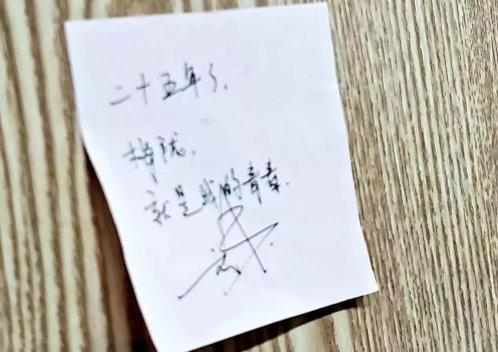 二十五年了、
梅陇、
就是我的青春.